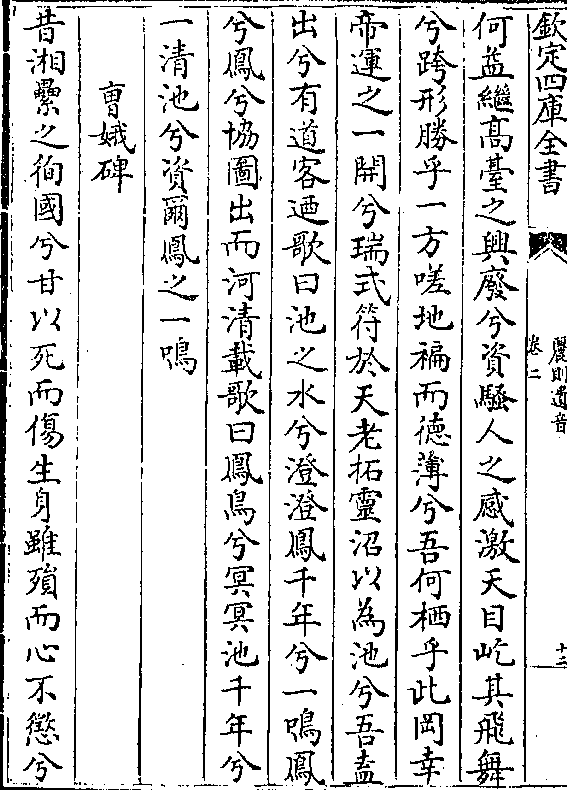 欽定四庫全書
麗則遺音
卷二
十三
何益繼髙臺之興廢兮資騷人之感激天目屹其飛舞
兮跨形勝乎一方嗟地褊而德薄兮吾何栖乎此岡幸
帝運之一開兮瑞式符於天老拓靈沼以為池兮吾盍
出兮有道客迺歌曰池之水兮澄澄鳳千年兮一鳴鳳
兮鳳兮協圖出而河清載歌曰鳳鳥兮冥冥池千年兮
一清池兮資爾鳳之一鳴
曹娥碑
昔湘纍之徇國兮甘以死而傷生身雖殞而心不懲兮